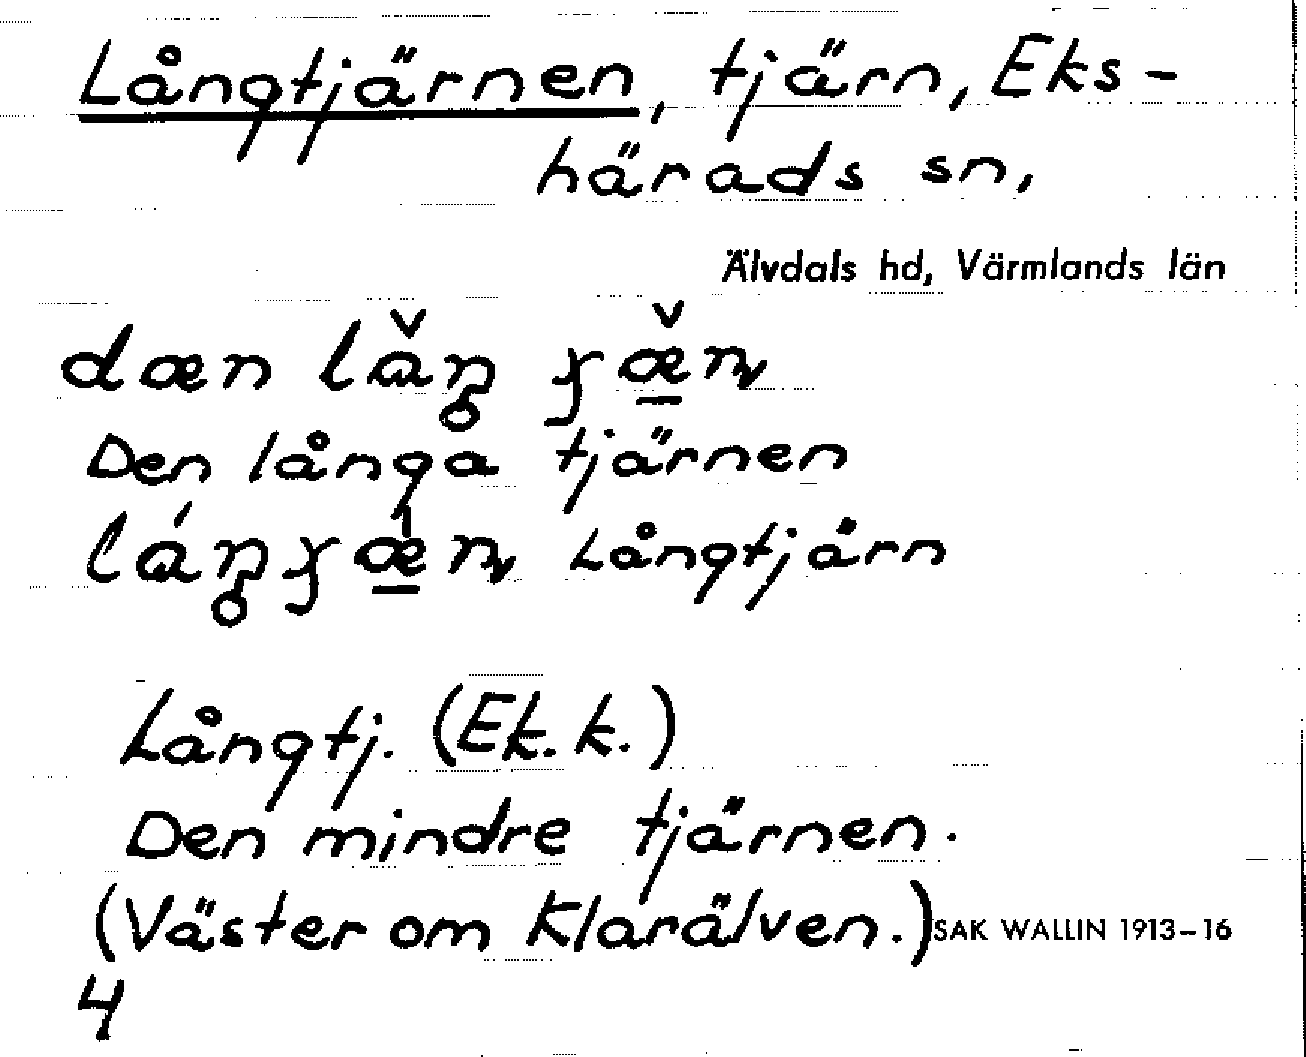 Långtjärnen, tjärn, Eks-
härads sn,
Älvdals hd, Värmlands län
dæn
Den långa tjärnen
Långtjärn
Långtj. (Ek. k.)
Den mindre tjärnen.
(Väster om Klarälven.) SAK WALLIN 1913–16
4